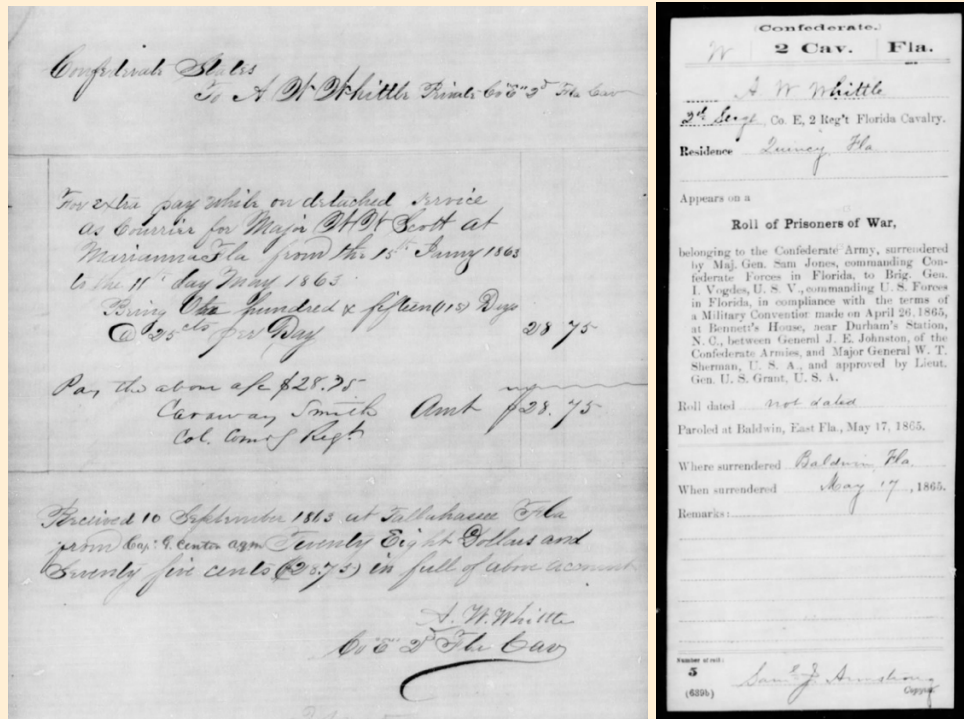 Confederate States
To A W Whittle Private Co "E" 2d Fla Cav
For extra pay while on detached service
as Courrier for Major W W Scott at
Marianna Fla from the 15th Janry 1863
to the 11th day May 1863.
Being One hundred & fifteen (115) Days
@ 25 cts per Day 28 75
Pay the above a/c $28.75
Caraway Smith Amt $28.75
Col. Comg Regt
Received 10 September 1863 at Tallahassee Fla
from Capt Twenty Eight Dollars and
Seventy five cents ($28.75) in full of above account
A. W. Whittle
Co "E" 2d Fla Cav
(Confederate.)
W 2 Cav. Fla.
A W Whittle
2d Sergt, Co. E, 2 Reg't Florida Cavalry.
Residence Quincy Fla
Appears on a
Roll of Prisoners of War,
belonging to the Confederate Army, surrendered
by Maj. Gen. Sam Jones, commanding Con-
federate Forces in Florida, to Brig. Gen.
I. Vogdes, U. S. V., commanding U. S. Forces
in Florida, in compliance with the terms of
a Military Convention made on April 26, 1865,
at Bennett's House, near Durham's Station,
N. C., between General J. E. Johnston, of the
Confederate Armies, and Major General W. T.
Sherman, U. S. A., and approved by Lieut.
Gen. U. S. Grant, U. S. A.
Roll dated not dated
Paroled at Baldwin, East Fla., May 17, 1865.
Where surrendered Baldwin, Fla.
When surrendered May 17, 1865.
Remarks:
Number of roll:
5
(639b)
Saml J. Armstrong
Copyist.